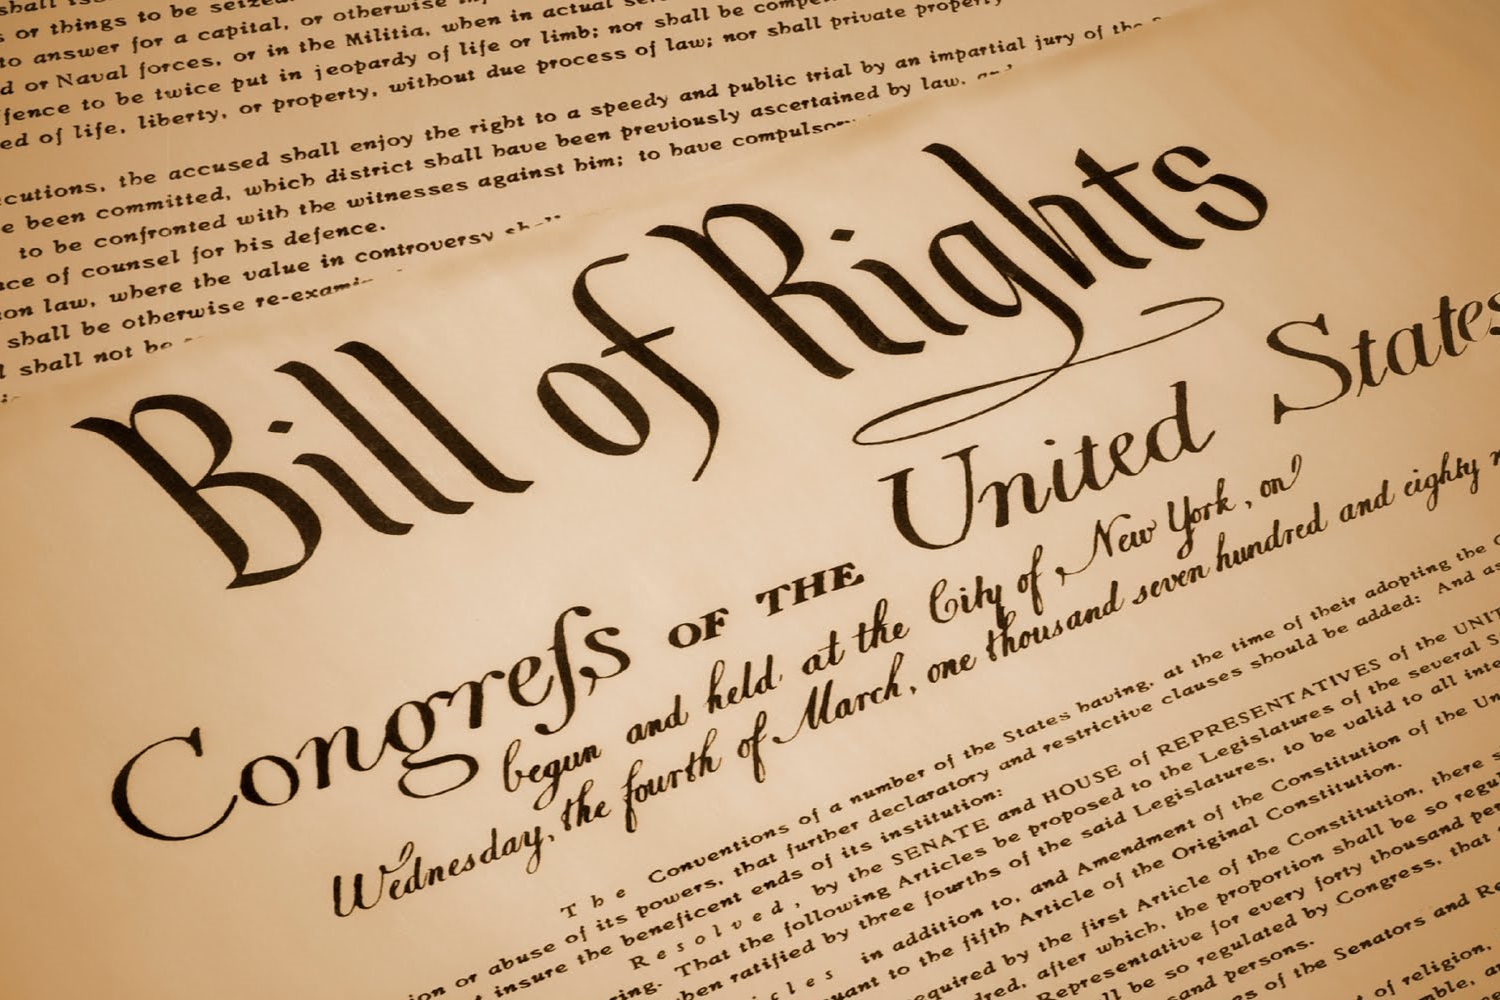 shall
or things to be seized.
to answer for a capital, or otherwise
or Naval forces, or in the Militia, when in actual
to be twice put in jeopardy of life or limb; nor shall be
of life, liberty, or property, without due process of law; nor shall private property
the accused shall enjoy the right to a speedy and public trial by an impartial jury of the
been committed, which district shall have been previously ascertained by law, and
to be confronted with the witnesses against him; to have
of counsel for his defence.
law, where the value in controversy
shall be otherwise
shall not be
Bill of Rights
Congreſs OF THE United States
begun and held at the City of New York, on
Wednesday, the fourth of March, one thousand seven hundred and eighty
The Conventions of a number of the States having, at the time of their adopting the
or abuse of its powers, that further declaratory and restrictive clauses should be added: And
insure the beneficent ends of its institution:
Resolved, by the SENATE and HOUSE of REPRESENTATIVES of the
That the following Articles be proposed to the Legislatures of the several
ratified by three fourths of the said Legislatures, to be valid to all
in addition to, and Amendment of the Constitution of the
to the fifth Article of the Original Constitution.
by the first Article of the Constitution, there
after which, the proportion shall be so
Representative for every forty thousand
be so regulated by Congress, that
persons.
of the Senators and
of religion,